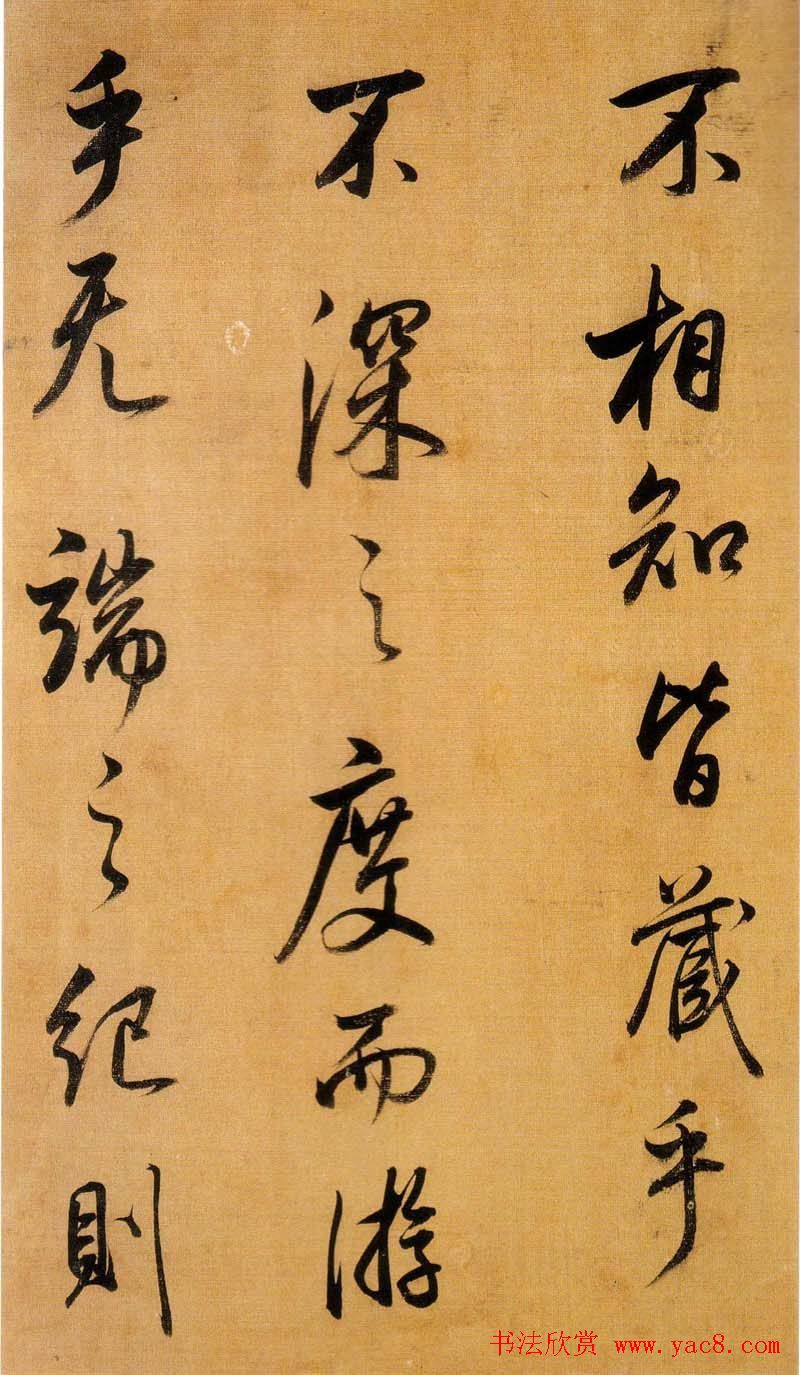 不相知皆藏乎
不深之度而游
乎无端之纪则
书法欣赏 www.yac8.com